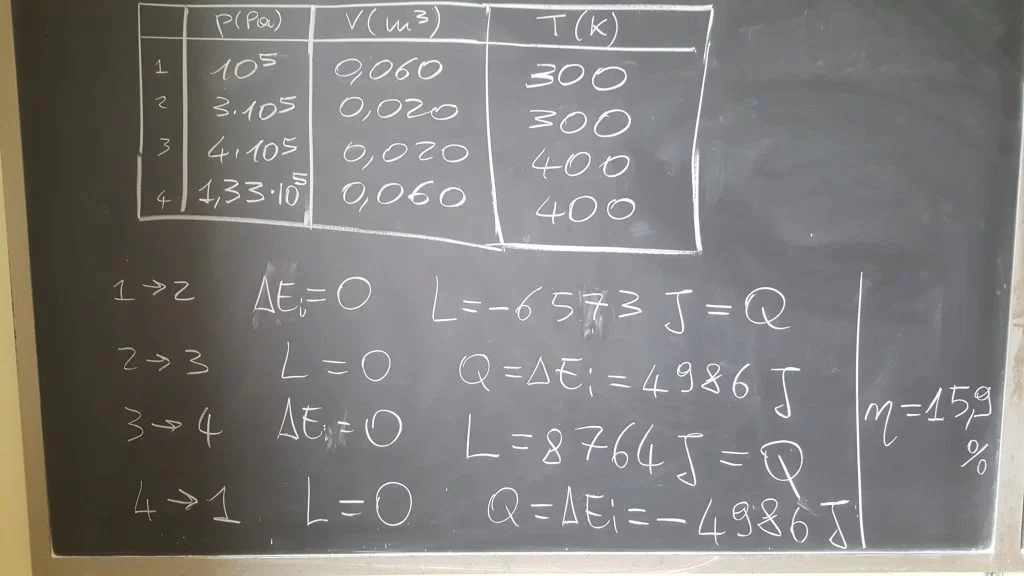 P(Pa) V(m³) T(K)
1 10⁵ 0,060 300
2 3·10⁵ 0,020 300
3 4·10⁵ 0,020 400
4 1,33·10⁵ 0,060 400
1→2 ΔEi=0 L=-6573 J=Q
2→3 L=0 Q=ΔEi=4986 J
3→4 ΔEi=0 L=8764 J=Q
4→1 L=0 Q=ΔEi=-4986 J
η=15,9
%